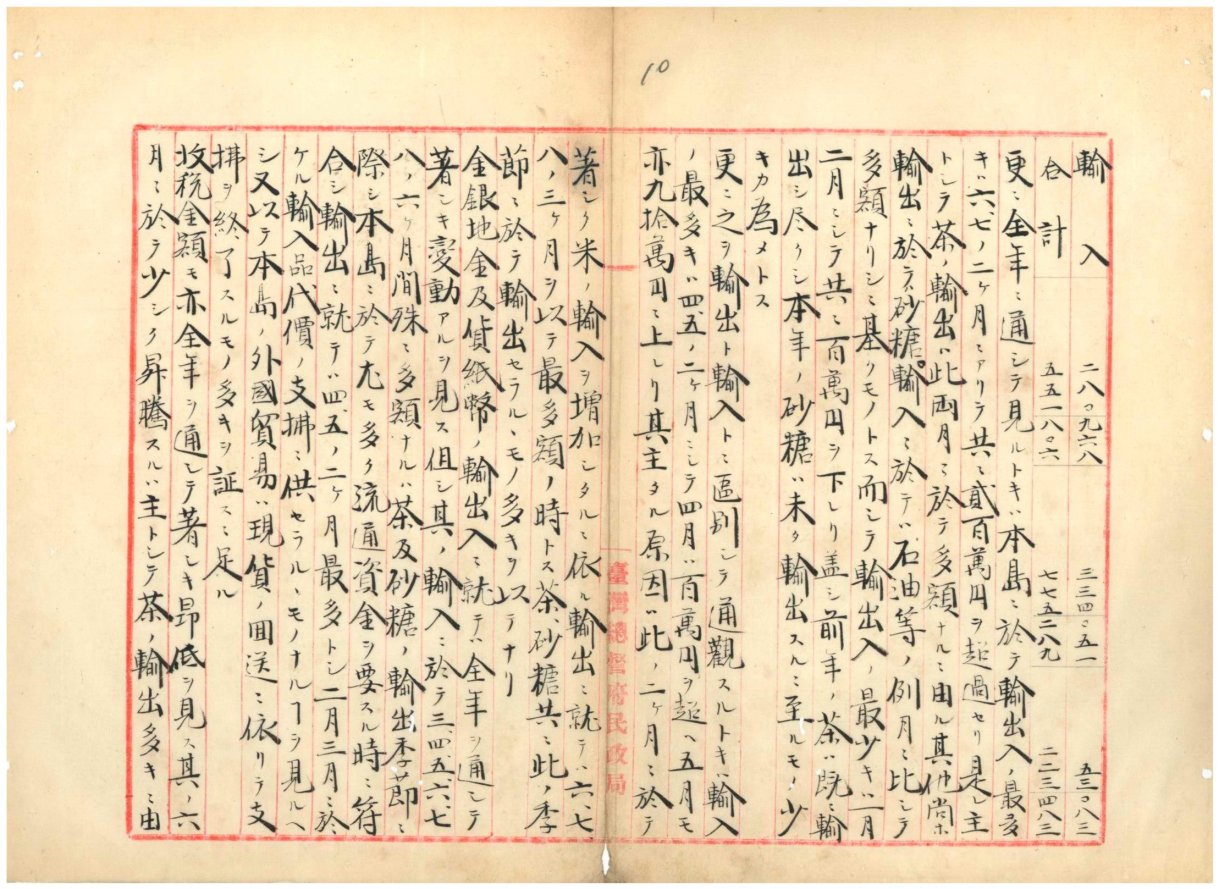 10
輸入 二八〇九六八 三三四〇五一 五三〇八三
合計 五五一八〇六 七七五二八九 二二三四八三
更ニ全年ニ通シテ見ルトキハ本島ニ於テ輸出入ノ最多
キハ六七ノ二ヶ月ニアリテ共ニ貳百萬円ヲ超過セリ是レ主
トシテ茶ノ輸出ハ此両月ニ於テ多額ナルニ由ル其他尚ホ
輸出ニ於テ砂糖。輸入ニ於テハ石油等ノ例月ニ比シテ
多額ナリシニ基クモノトス而シテ輸出入ノ最少キハ一月
二月ニシテ共ニ百萬円ヲ下レリ蓋シ前年ノ茶ハ既ニ輸
出シ尽クシ本年ノ砂糖ハ未タ輸出スルニ至ルモノ少
キカ為メトス
更ニ之ヲ輸出ト輸入トニ區別シテ通觀スルトキハ輸入
ノ最多キハ四、五ノ二ヶ月ニシテ四月ハ百萬円ヲ超ヘ五月モ
亦九拾萬円ニ上レリ其主タル原因ハ此ノ二ヶ月ニ於テ
臺灣總督府民政局
著シク米ノ輸入ヲ増加シタルニ依ル輸出ニ就テハ六、七、
八ノ三ヶ月ヲ以テ最多額ノ時トス茶、砂糖共ニ此ノ季
節ニ於テ輸出セラルヽモノ多キヲ以テナリ
金銀地金及貨紙幣ノ輸出入ニ就テハ全年ヲ通シテ
著シキ變動アルヲ見ス但シ其ノ輸入ニ於テ三、四、五、六、七
八ノ六ヶ月間殊ニ多額ナルハ茶及砂糖ノ輸出季節ニ
際シ本島ニ於テ尤モ多ク流通資金ヲ要スル時ニ符
合シ輸出ニ就テハ四、五ノ二ヶ月最多トシ二月三月ニ於
ケル輸入品代價ノ支拂ニ供セラルヽモノナルヿヲ見ルヘ
シ又以テ本島ノ外國貿易ハ現貨ノ囬送ニ依リテ支
拂ヲ終了スルモノ多キヲ証スニ足ル
收税金額モ亦全年ヲ通シテ著シキ昻低ヲ見ス其ノ六
月ニ於テ少シク昇騰スルハ主トシテ茶ノ輸出多キニ由